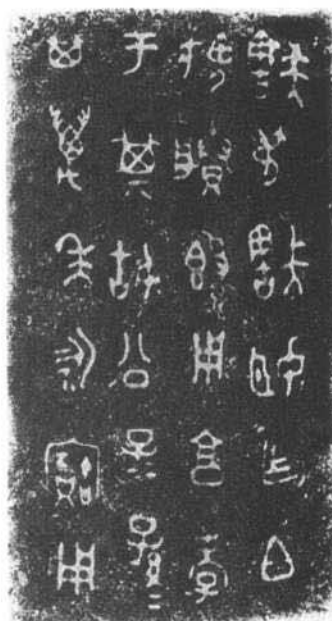 㝬叔㝬姬乍白
媿賸𣪘用享孝
于其姑公子=孫=
其萬年永寶用